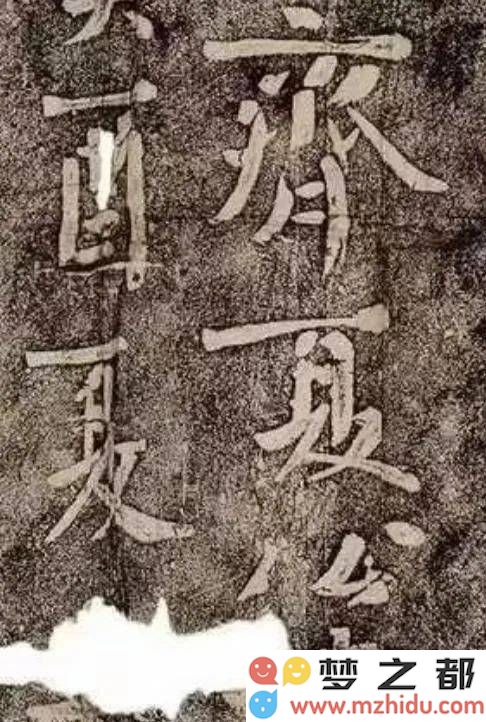 齊夏公
酉夏
梦之都
www.mzhidu.com